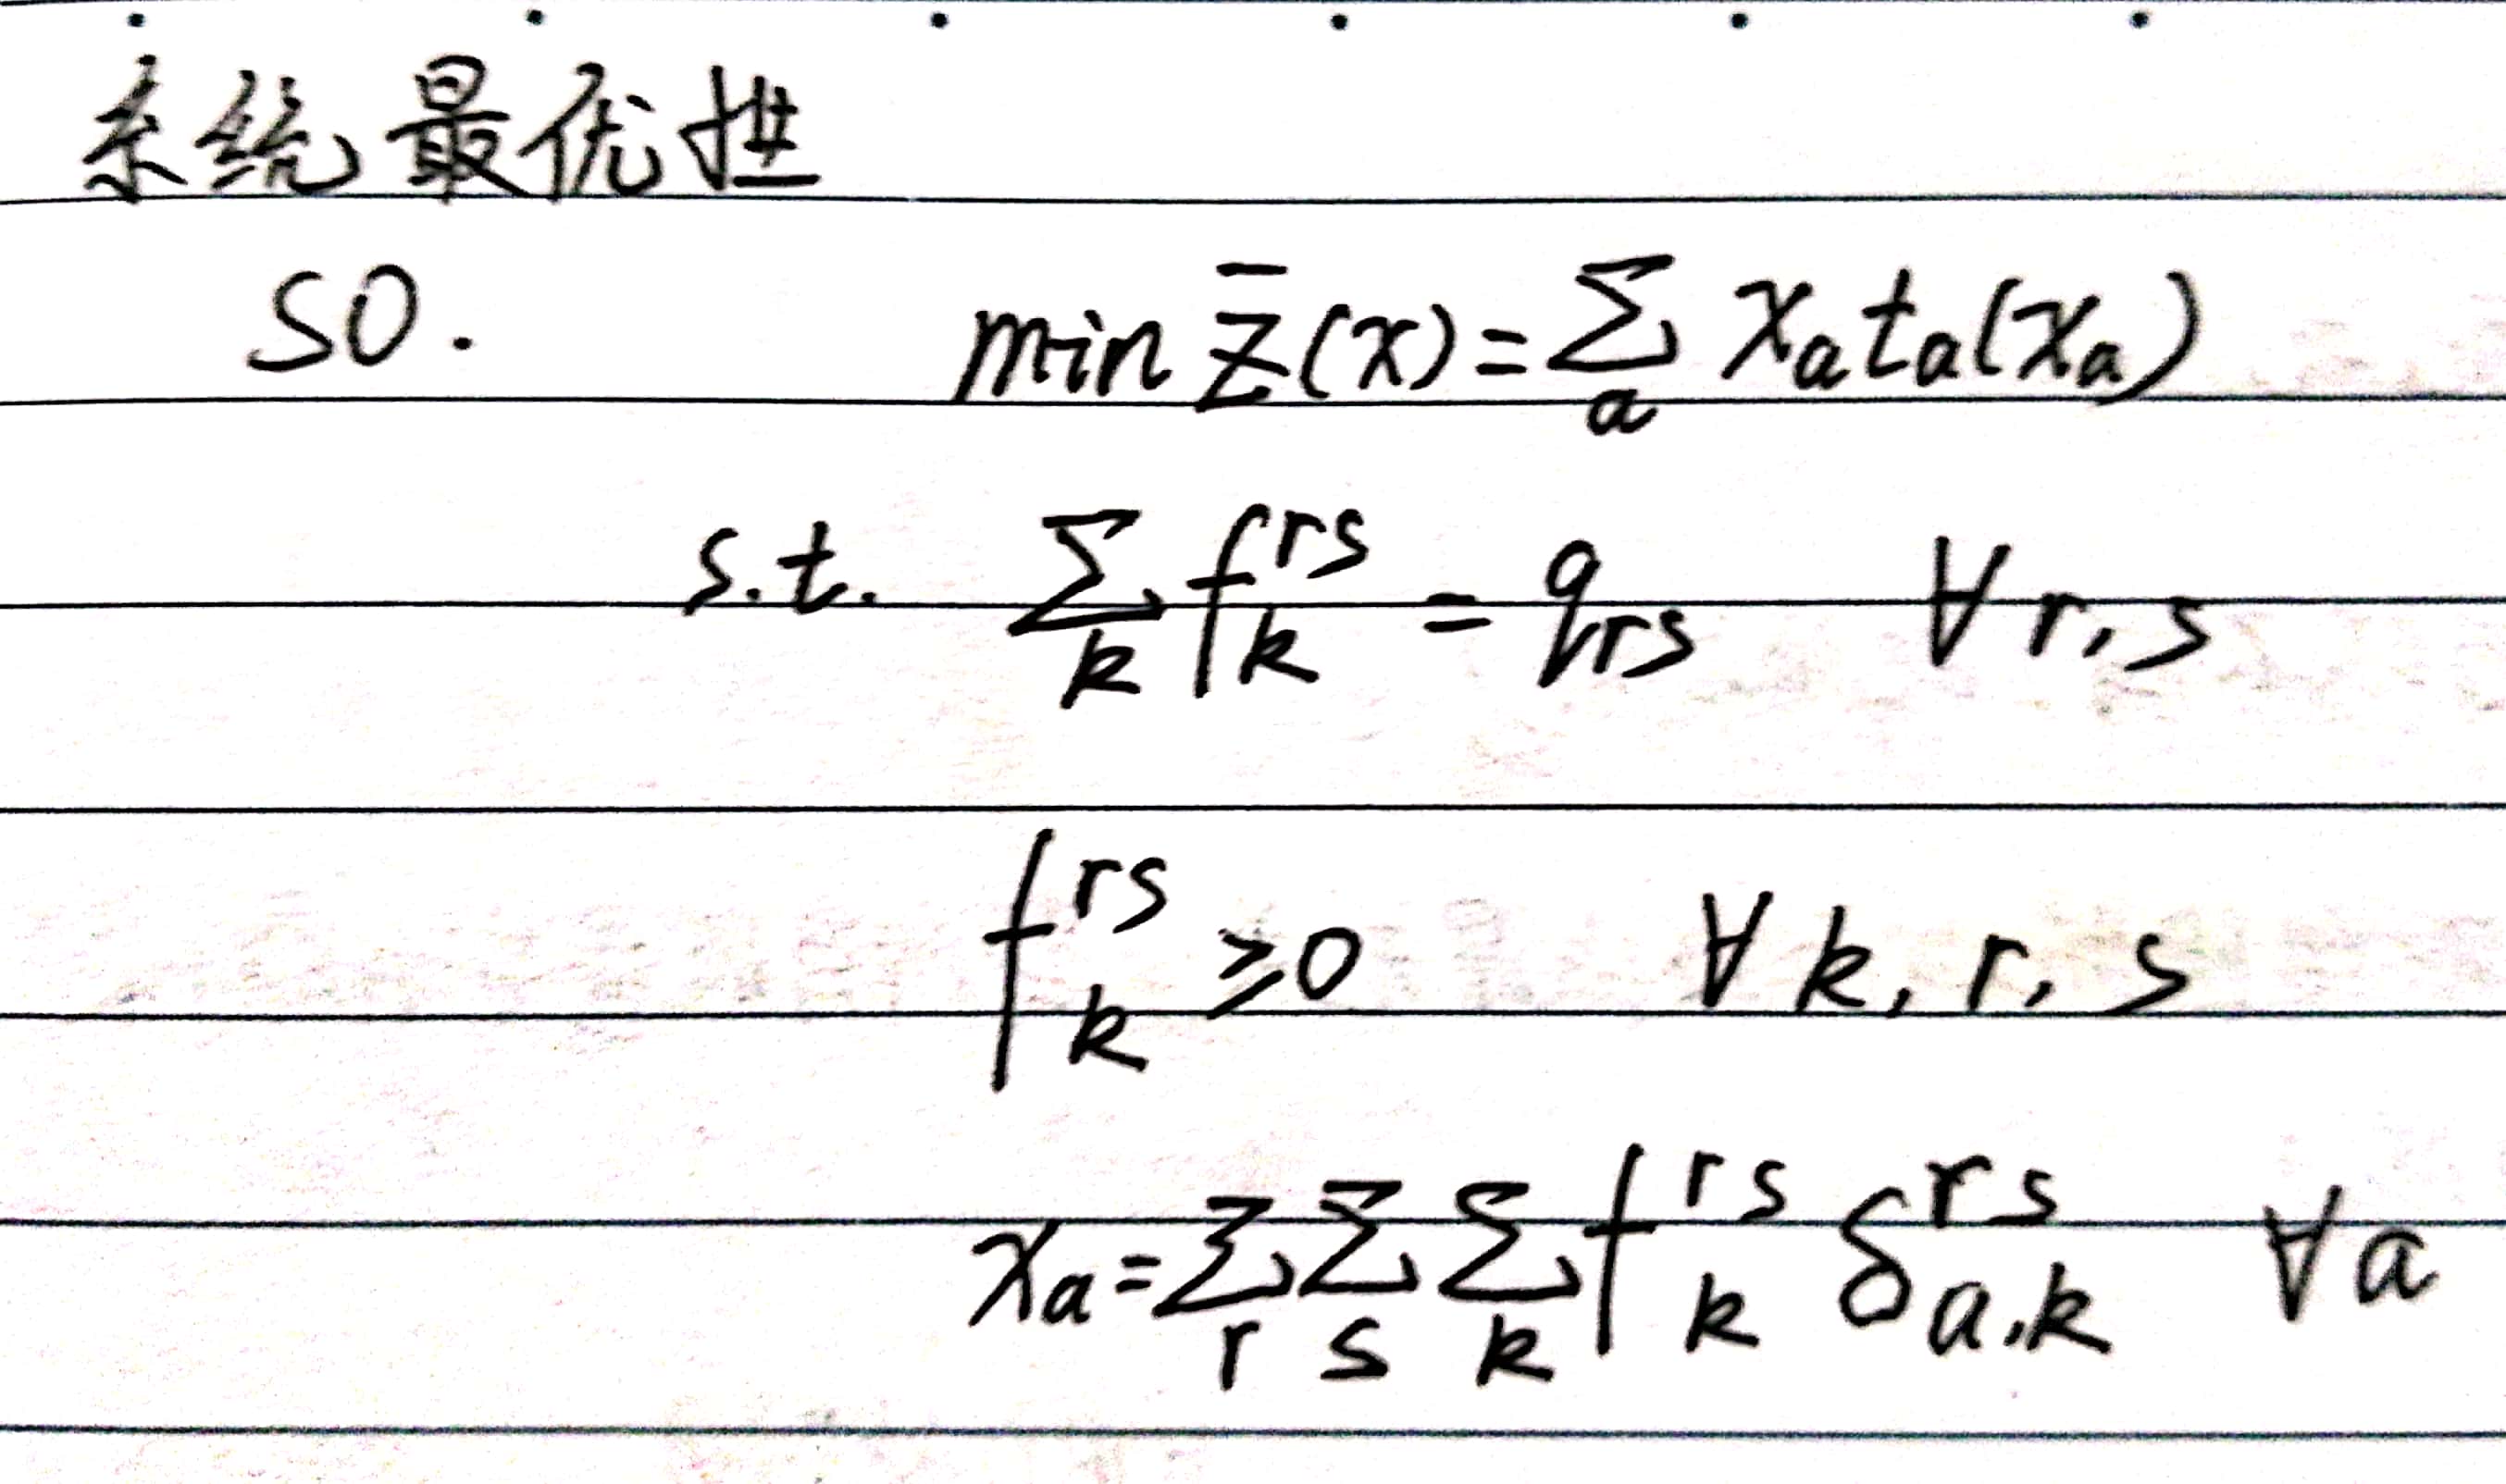 系统最优性
SO. min z̄(x) = ∑_a x_a t_a(x_a)
s.t. ∑_k f_k^{rs} = q_{rs} ∀ r, s
f_k^{rs} ≥ 0 ∀ k, r, s
x_a = ∑_r ∑_s ∑_k f_k^{rs} δ_{a,k}^{rs} ∀ a